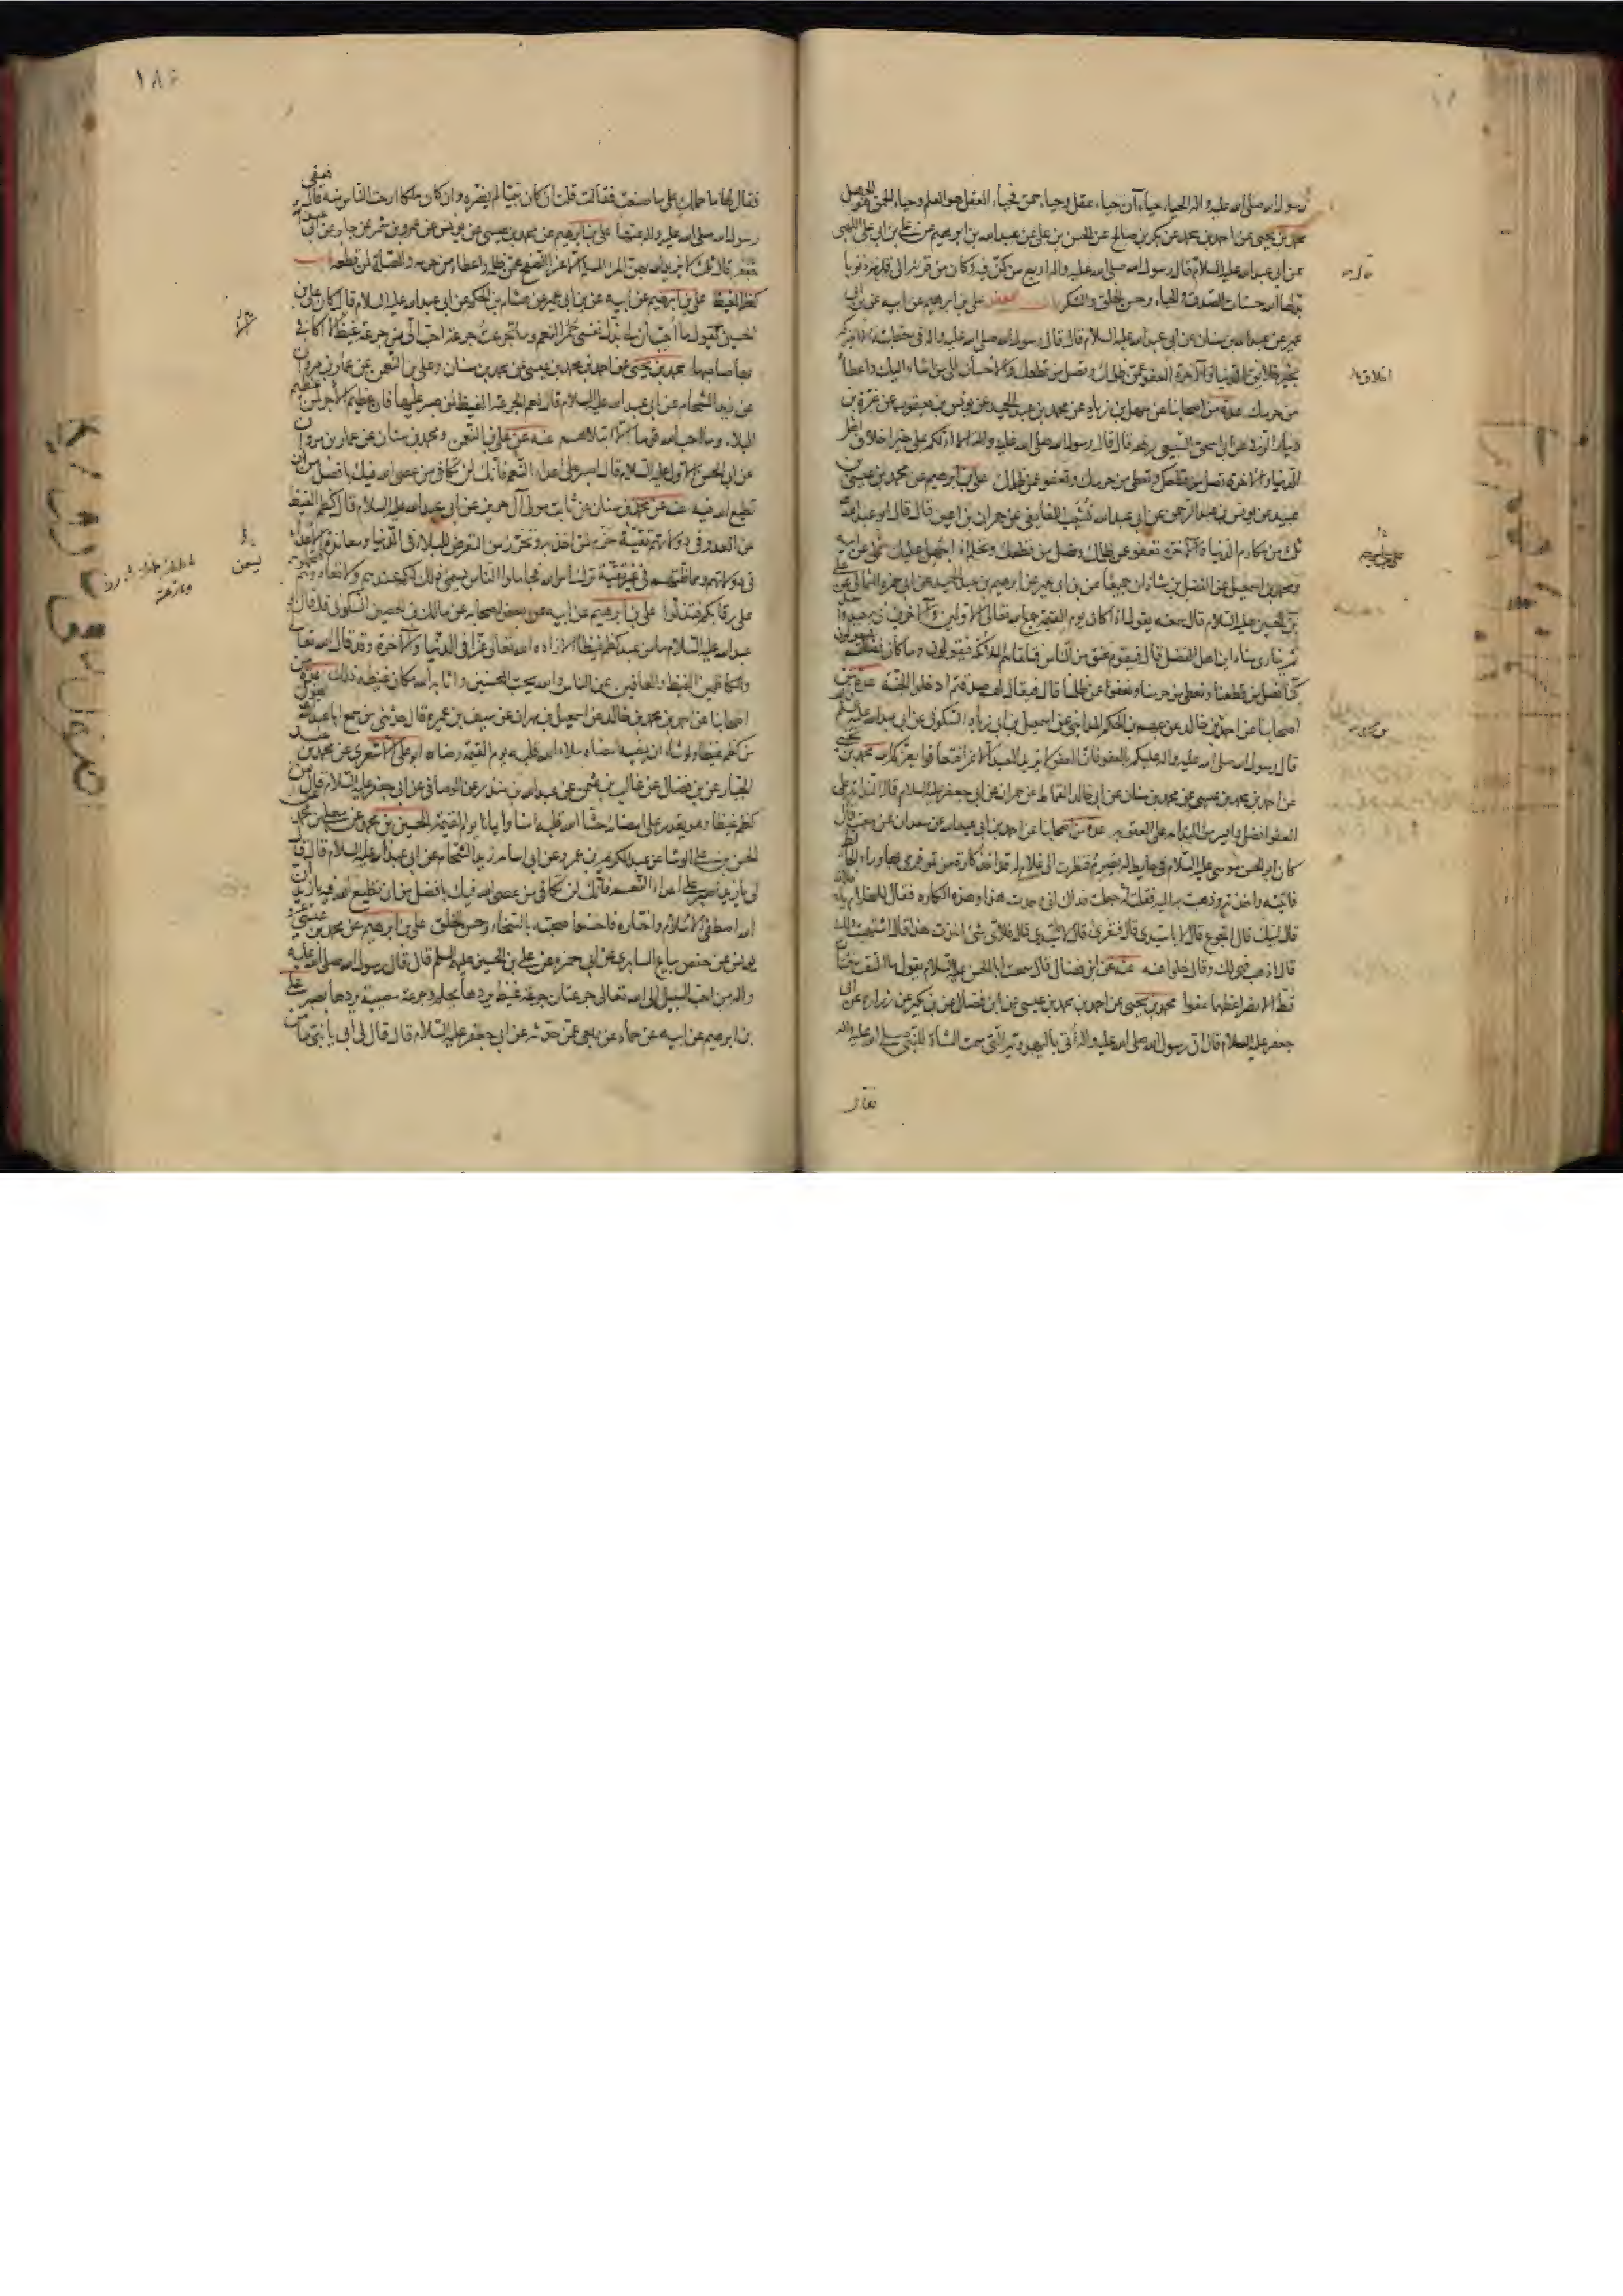 رسول الله صلى الله عليه واله الحياء حياءآن حياء عقل وحياء حمق فحياء العقل هو العلم وحياء الحمق هو الجهل
محمد بن يحيى عن احمد بن محمد عن بكر بن صالح عن الحسن بن علي عن عبد الله بن ابرهيم عن علي بن ابي علي اللهبي
عن ابي عبد الله عليه السلام قال قال رسول الله صلى الله عليه واله اربع من كن فيه وكان من قرنه الى قدمه ذنوبا
بدلها الله حسنات الصدق والحياء وحسن الخلق والشكر باب العفو علي بن ابرهيم عن ابيه عن ابن ابي
عمير عن عبد الله بن سنان عن ابي عبد الله عليه السلام قال قال رسول الله صلى الله عليه واله في خطبته الا اخبركم
بخير خلايق الدنيا والآخرة العفو عمن ظلمك وتصل من قطعك والاحسان الى من اساء اليك واعطاء
من حرمك عدة من اصحابنا عن سهل بن زياد عن محمد بن عبد الحميد عن يونس بن يعقوب عن غرة بن
دينار الرقي عن ابي اسحق السبيعي رفعه قال قال رسول الله صلى الله عليه واله الا ادلكم على خير اخلاق اهل
الدنيا والآخرة تصل من قطعك وتعطي من حرمك وتعفو عمن ظلمك علي بن ابرهيم عن محمد بن عيسى بن
عبيد عن يونس بن عبد الرحمن عن ابي عبد الله نشيب اللفايفي عن حمران بن اعين قال قال ابو عبد الله
ثلث من مكارم الدنيا والآخرة تعفو عمن ظلمك وتصل من قطعك وتحلم اذا جهل عليك علي عن ابيه
ومحمد بن اسمعيل عن الفضل بن شاذان جميعا عن ابن ابي عمير عن ابرهيم بن عبد الحميد عن ابي حمزة الثمالي عن علي
بن الحسين عليه السلام قال سمعته يقول اذا كان يوم القيمة جمع الله تعالى الاولين والآخرين في صعيد واحد
ثم ينادي مناد اين اهل الفضل قال فيقوم عنق من الناس فتلقاهم الملائكة فيقولون وما كان فضلكم فيقولون
كنا نصل من قطعنا ونعطي من حرمنا ونعفو عمن ظلمنا قال فيقال لهم صدقتم ادخلوا الجنة عدة من
اصحابنا عن احمد بن خالد عن جهم بن الحكم المدايني عن اسمعيل بن ابي زياد السكوني عن ابي عبد الله عليه السلم
قال قال رسول الله صلى الله عليه واله عليكم بالعفو فان العفو لا يزيد العبد الا عزا فتعافوا يعزكم الله محمد بن يحيى
عن احمد بن محمد بن عيسى عن محمد بن سنان عن ابي خالد القماط عن حمران عن ابي جعفر عليه السلام قال الندامة على
العفو افضل وايسر من الندامة على العقوبة عدة من اصحابنا عن احمد بن ابي عبد الله عن سعدان عن معتب قال
كان ابو الحسن موسى عليه السلام في حايط له يصرم فنظرت الى غلام له قد اخذ كارة من تمر فرمى بها وراء الحائط
فاتيته واخذته وذهبت به اليه فقلت له جعلت فداك اني وجدت هذا وهذه الكارة فقال للغلام يا فلان
قال لبيك قال اتجوع قال لا يا سيدي قال فتعرى قال لا يا سيدي قال فلاي شيء اخذت هذه قال اشتهيت ذلك
قال اذهب فهي لك وقال خلوا عنه عنه عن ابن فضال قال سمعت ابا الحسن عليه السلام يقول ما التقت فئتان
قط الا نصر اعظمهما عفوا محمد بن يحيى عن احمد بن محمد بن عيسى عن ابن فضال عن ابن بكير عن زرارة عن ابي
جعفر عليه السلام قال ان رسول الله صلى الله عليه واله أتي باليهودية التي سمت الشاة للنبي صلى الله عليه واله
فقال
١٨٦
فقال لها ما حملك على ما صنعت فقالت قلت ان كان نبيا لم يضره وان كان ملكا ارحت الناس منه قال فعفى
رسول الله صلى الله عليه واله عنها علي بن ابرهيم عن محمد بن عيسى عن يونس عن عمرو بن شمر عن جابر عن ابي
جعفر قال ثلث لا يزيد الله بهن المرء المسلم الا عزا الصفح عمن ظلمه واعطاء من حرمه والصلة لمن قطعه باب
كظم الغيظ علي بن ابرهيم عن ابيه عن ابن ابي عمير عن هشام بن الحكم عن ابي عبد الله عليه السلام قال كان علي بن
الحسين يقول ما احب ان لي بذل نفسي حمر النعم وما تجرعت جرعة احب الي من جرعة غيظ لا اكافي
بها صاحبها محمد بن يحيى عن احمد بن محمد بن عيسى عن محمد بن سنان وعلي بن النعمن عن عمار بن مروان
عن زيد الشحام عن ابي عبد الله عليه السلام قال نعم الجرعة الغيظ لمن صبر عليها فان عظيم الاجر لمن عظيم
البلاء وما احب الله قوما الا ابتلاهم عنه عن علي بن النعمن ومحمد بن سنان عن عمار بن مروان
عن ابي الحسن الاول عليه السلام قال اصبر على اعداء النعم فانك لن تكافي من عصى الله فيك بافضل من ان
تطيع الله فيه عنه عن محمد بن سنان عن ثابت مولى آل حريز عن ابي عبد الله عليه السلام قال كظم الغيظ
عن العدو في دولاتهم تقية حزم لمن اخذ به وتحرز من التعرض للبلاء في الدنيا ومعاندة الاعداء
في دولاتهم ومماظتهم في غير تقية ترك امر الله فجاملوا الناس يسمن ذلك لكم عندهم ولا تعادوهم فتحملوهم
على رقابكم فتذلوا علي بن ابرهيم عن ابيه عن بعض اصحابه عن مالك بن الحصين السكوني قال قال ابو
عبد الله عليه السلام ما من عبد كظم غيظا الا زاده الله تعالى عزا في الدنيا والآخرة وقد قال الله تعالى
والكاظمين الغيظ والعافين عن الناس والله يحب المحسنين واثابه الله مكان غيظه ذلك عدة من
اصحابنا عن احمد بن محمد بن خالد عن اسمعيل بن مهران عن سيف بن عميرة قال حدثني من سمع ابا عبد الله يقول
من كظم غيظا ولو شاء ان يمضيه امضاه ملاء الله قلبه يوم القيمة رضاه ابو علي الاشعري عن محمد بن عبد
الجبار عن ابن فضال عن غالب بن عثمن عن عبد الله بن منذر عن الوصافي عن ابي جعفر عليه السلام قال من
كظم غيظا وهو يقدر على امضائه حشا الله قلبه امنا وايمانا يوم القيمة الحسين بن محمد عن معلى بن محمد عن
الحسن بن علي الوشا عن عبد الكريم بن عمرو عن ابي اسامة زيد الشحام عن ابي عبد الله عليه السلام قال قال
لي يا زيد اصبر على اعداء النعم فانك لن تكافي من عصى الله فيك بافضل من ان تطيع الله فيه يا زيد ان
الله اصطفى الاسلام واختاره فاحسنوا صحبته بالسخاء وحسن الخلق علي بن ابرهيم عن محمد بن عيسى عن
يونس عن حفص بياع السابري عن ابي حمزة عن علي بن الحسين عليه السلم قال قال رسول الله صلى الله عليه
واله من احب السبيل الى الله تعالى جرعتان جرعة غيظ يردها بحلم وجرعة مصيبة يردها بصبر علي
بن ابرهيم عن ابيه عن حماد عن ربعي عمن حدثه عن ابي جعفر عليه السلام قال قال لي ابي يا بني ما من